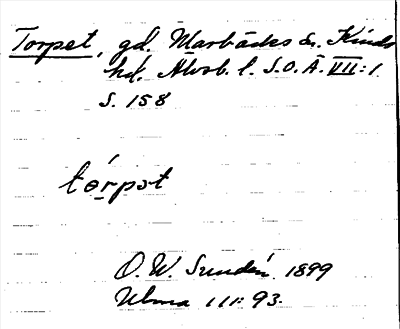 Torpet, gd. Marbäcks sn. Kinds
hd. Älvsb. l. S.O.Ä. VII:1
s. 158
tǫ́rpət
O. W. Sundén 1899
Ulma 111:93.